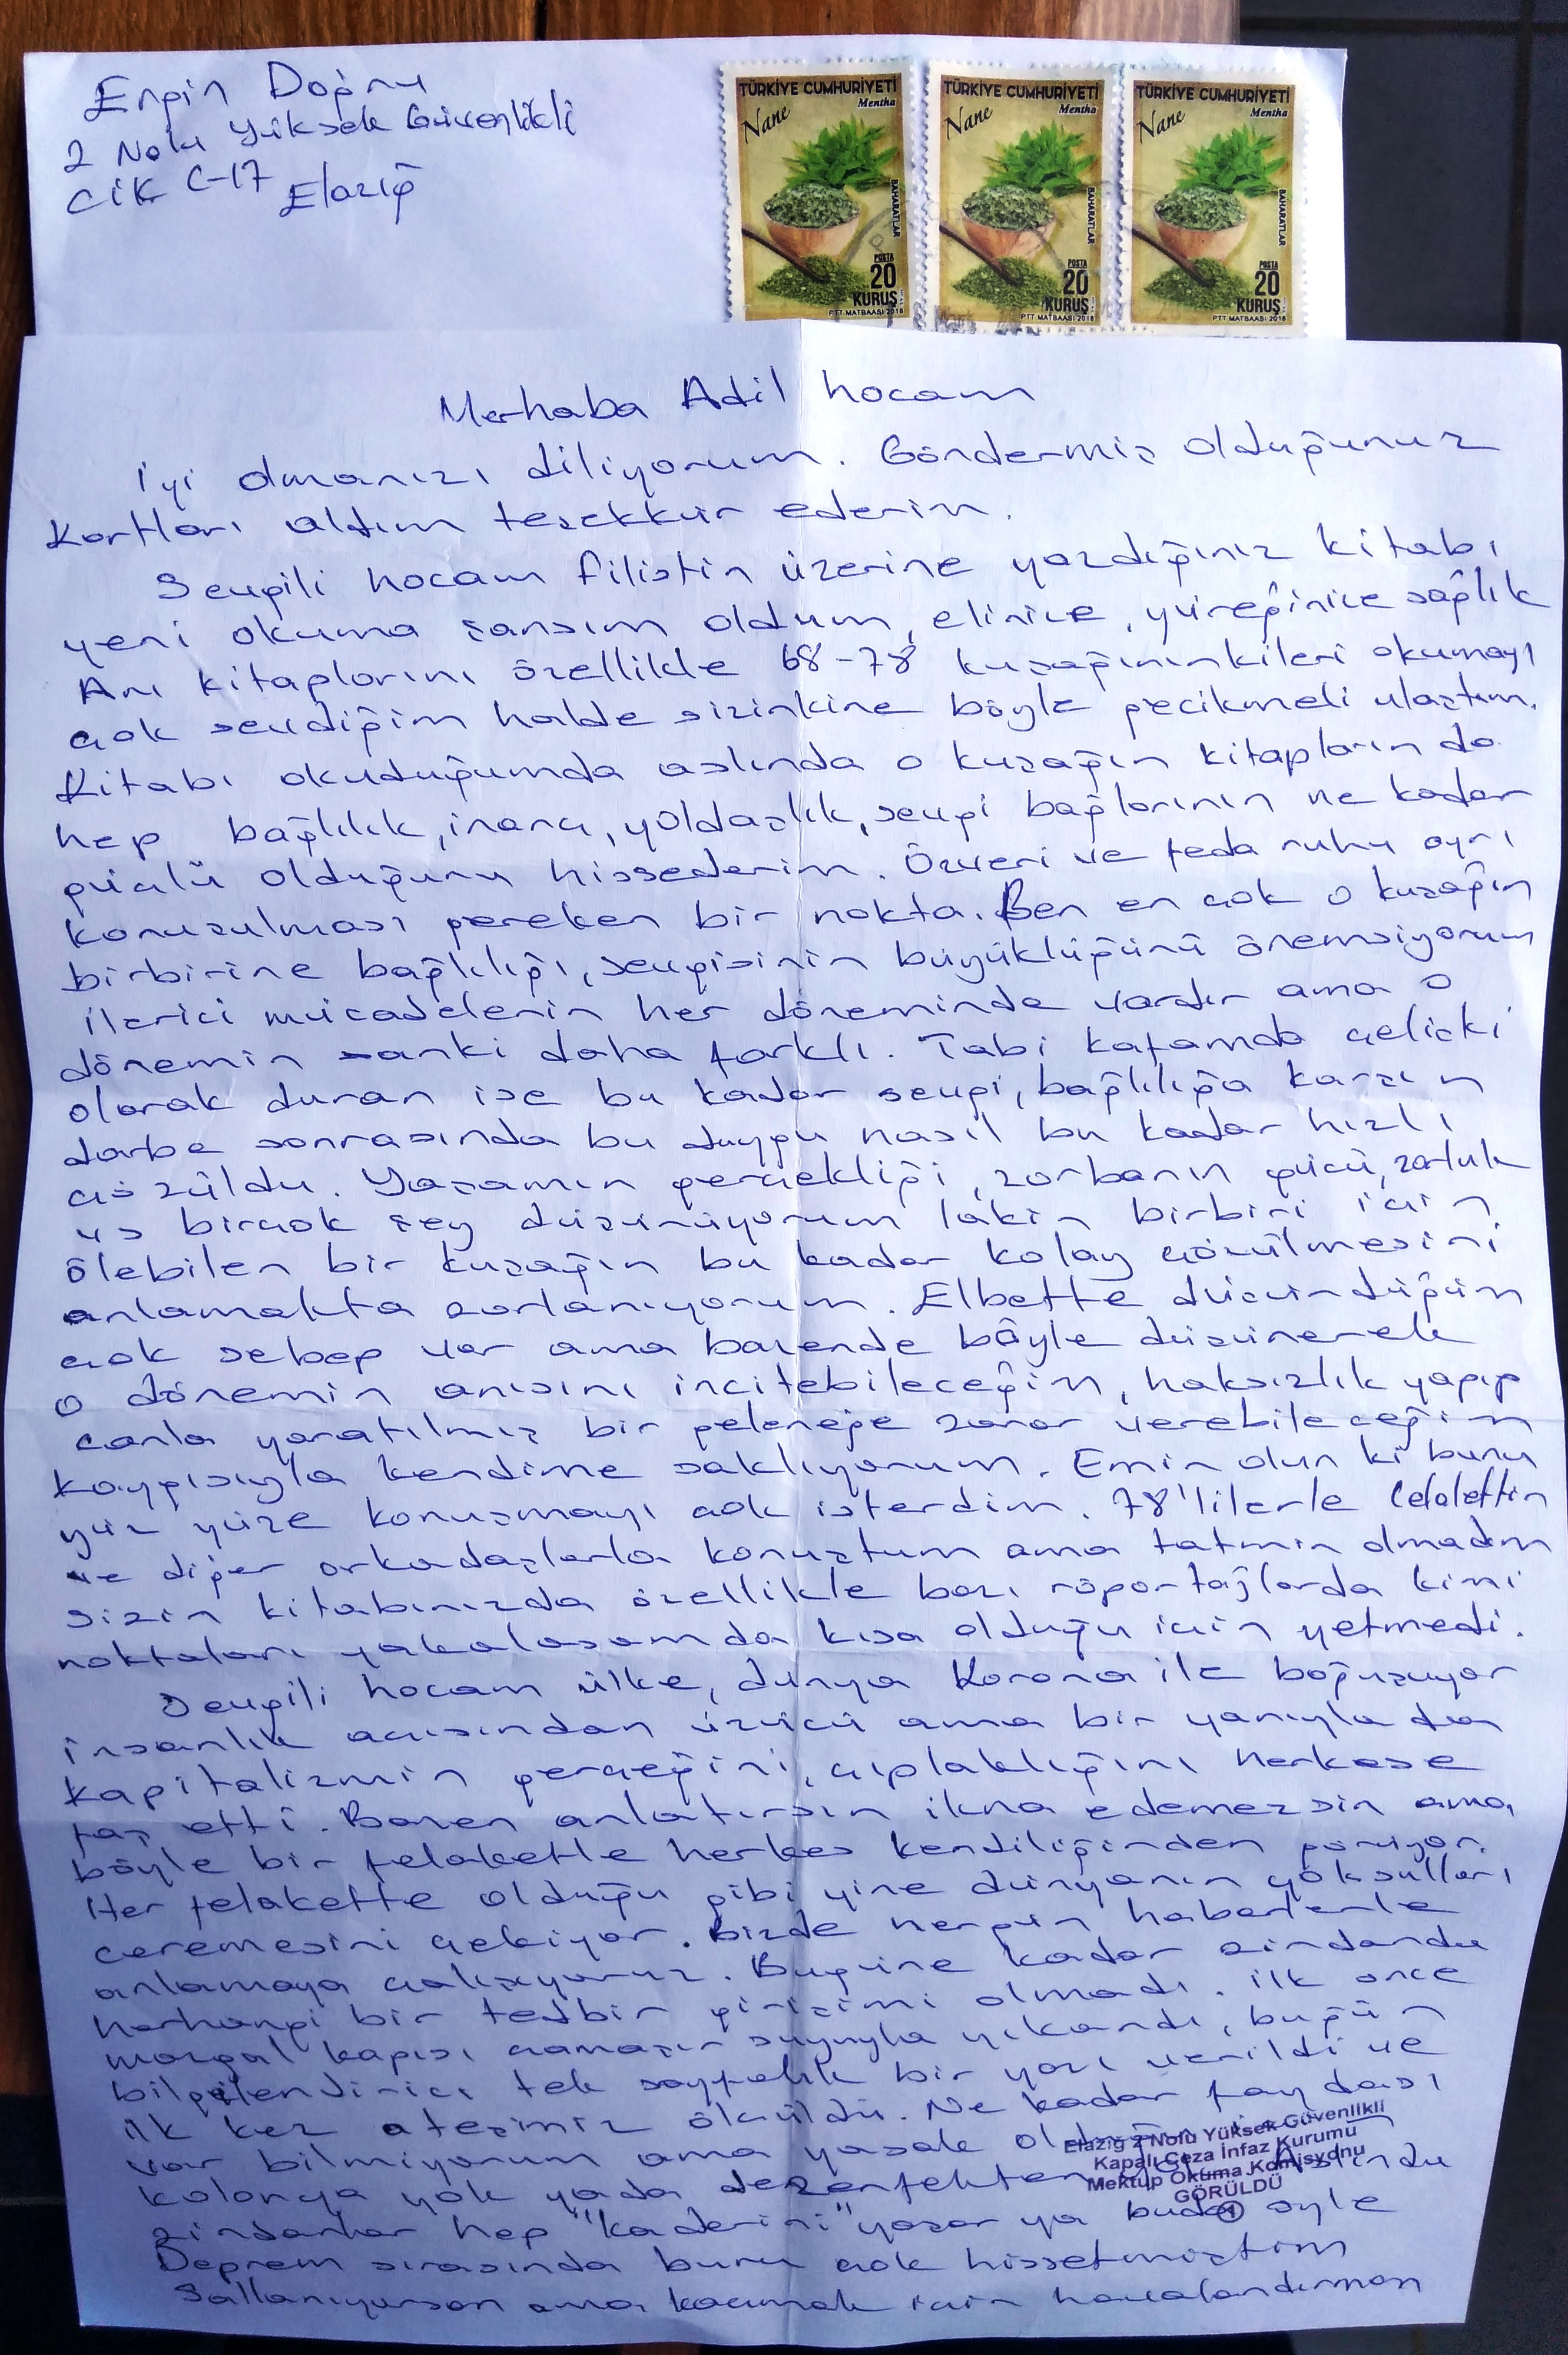 Engin Doğru
2 Nolu Yüksek Güvenlikli
CİK C-17 Elazığ
TÜRKİYE CUMHURİYETİ
Mentha
Nane
BAHARATLAR
POSTA
20
KURUŞ
PTT MATBAASI 2018
TÜRKİYE CUMHURİYETİ
Mentha
Nane
BAHARATLAR
POSTA
20
KURUŞ
PTT MATBAASI 2018
TÜRKİYE CUMHURİYETİ
Mentha
Nane
BAHARATLAR
POSTA
20
KURUŞ
PTT MATBAASI 2018
Merhaba Adil hocam
İyi olmanızı diliyorum. Göndermiş olduğunuz
kartları aldım teşekkür ederim.
Sevgili hocam Filistin üzerine yazdığınız kitabı
yeni okuma şansım oldum, elinize, yüreğinize sağlık
Anı kitaplarını özellikle 68-78 kuşağınınkileri okumayı
çok sevdiğim halde sizinkine böyle gecikmeli ulaştım.
Kitabı okuduğumda aslında o kuşağın kitapların da
hep bağlılık, inanç, yoldaşlık, sevgi bağlarının ne kadar
güçlü olduğunu hissederim. Özveri ve feda ruhu ayrı
konuşulması gereken bir nokta. Ben en çok o kuşağın
birbirine bağlılığı, sevgisinin büyüklüğünü önemsiyorum
ilerici mücadelenin her döneminde vardır ama o
dönemin sanki daha farklı. Tabi kafamda çelişki
olarak duran ise bu kadar sevgi, bağlılığa karşın
darbe sonrasında bu duygu nasıl bu kadar hızlı
çözüldü. Yaşamın gerçekliği, zorbanın gücü, zorluk
vs birçok şey düşünüyorum lakin birbiri için
ölebilen bir kuşağın bu kadar kolay çözülmesini
anlamakta zorlanıyorum. Elbette düşündüğüm
çok sebep var ama bazende böyle düşünerek
o dönemin anısını incitebileceğim, haksızlık yapıp
canla yaratılmış bir geleneğe zarar verebileceğim
kaygısıyla kendime saklıyorum. Emin olun ki bunu
yüz yüze konuşmayı çok isterdim. 78'lilerle Celalettin
ve diğer arkadaşlarla konuştum ama tatmin olmadım
sizin kitabınızda özellikle bazı röportajlarda kimi
noktaları yakalasamda kısa olduğu için yetmedi.
Sevgili hocam ülke, dünya Korona ile boğuşuyor
insanlık açısından üzücü ama bir yanıyla da
kapitalizmin gerçeğini, çıplaklığını herkese
faş etti. Bazen anlatırsın ikna edemezsin ama
böyle bir felakette herkes kendiliğinden görüyor.
Her felakette olduğu gibi yine dünyanın yoksulları
ceremesini çekiyor. Bizde hergün haberlerle
anlamaya çalışıyoruz. Bugüne kadar zindanda
herhangi bir tedbir girişimi olmadı. ilk önce
mazgal kapısı çamaşır suyuyla yıkandı, bugün
bilgilendirici tek sayfalık bir yazı verildi ve
ilk kez ateşimiz ölçüldü. Ne kadar faydası
var bilmiyorum ama yasak
kolonya yok yada dezenfektan Aslında
zindanlar hep "kaderini" yaşar ya buda öyle
Deprem sırasında bunu çok hissetmiştim
Sallanıyorsan ama kaçmak için havalandırman
Elazığ 2 Nolu Yüksek Güvenlikli
Kapalı Ceza İnfaz Kurumu
Mektup Okuma Komisyonu
GÖRÜLDÜ
1